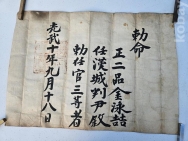 勅命
正二品金泳喆
任漢城判尹敘
勅任官三等者
光武十年九月十八日